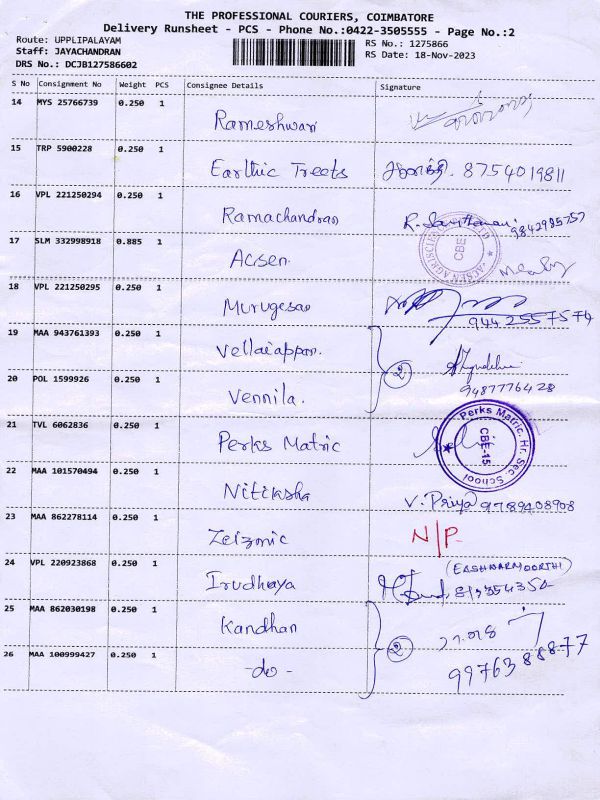 THE PROFESSIONAL COURIERS, COIMBATORE
Delivery Runsheet - PCS - Phone No.:0422-3505555 - Page No.:2
Route: UPPLIPALAYAM
Staff: JAYACHANDRAN
DRS No.: DCJB127586602
RS No.: 1275866
RS Date: 18-Nov-2023
S No Consignment No Weight PCS Consignee Details Signature
14 MYS 25766739 0.250 1 Rameshwari
15 TRP 5900228 0.250 1 Earthic Treets 8754019811
16 VPL 221250294 0.250 1 Ramachandran R. 9842985757
17 SLM 332998918 0.885 1 Acsen CBE
18 VPL 221250295 0.250 1 Murugesan 944 2557574
19 MAA 943761393 0.250 1 Vellaiappan.
20 POL 1599926 0.250 1 Vennila. 2 9487776428
21 TVL 6062836 0.250 1 Perks Matric Perks Matric. Hr. Sec. School CBE-15
22 MAA 101570494 0.250 1 Nitiksha V. Priya 9789408908
23 MAA 862278114 0.250 1 Zeizonic N/P.
24 VPL 220923868 0.250 1 Irudhaya (EASHWARMOORTHI)
25 MAA 862030198 0.250 1 Kandhan
26 MAA 100999427 0.250 1 -do- 2 9976388877